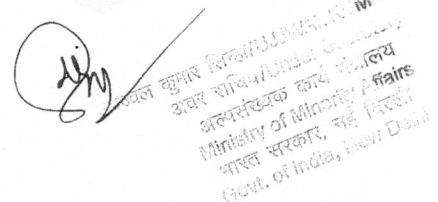 कुमार सिन्हा/UJJWAL KR
अवर सचिव/Under
अल्पसंख्यक कार्य मंत्रालय
Ministry of Minority Affairs
भारत सरकार, नई दिल्ली
Govt. of India, New Delhi